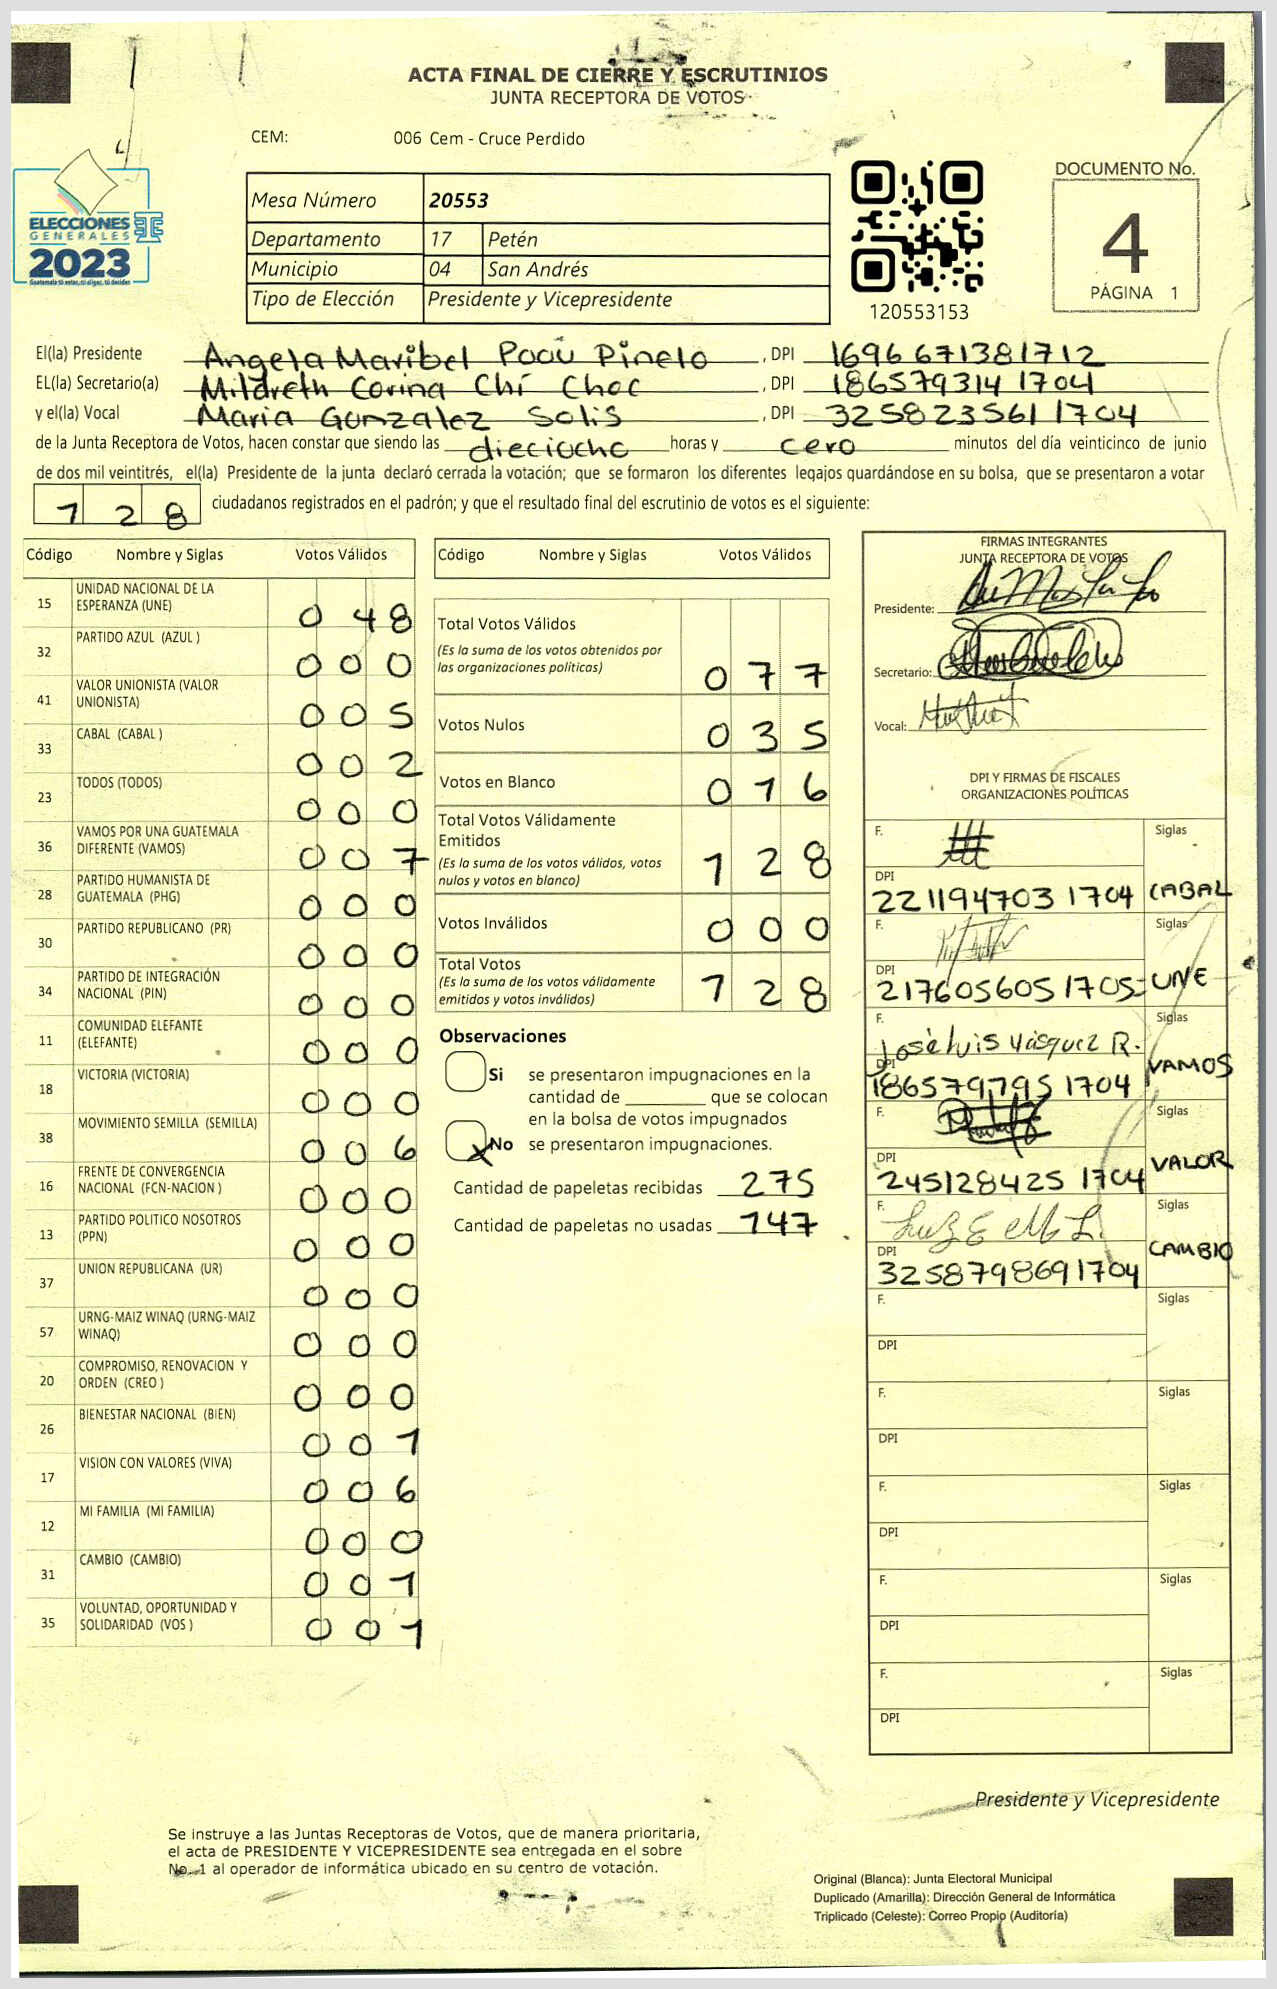 ACTA FINAL DE CIERRE Y ESCRUTINIOS
JUNTA RECEPTORA DE VOTOS
CEM: 006 Cem - Cruce Perdido
ELECCIONES
GENERALES
2023
Guatemala tú estas, tú eliges, tú decides
Mesa Número 20553
Departamento 17 Petén
Municipio 04 San Andrés
Tipo de Elección Presidente y Vicepresidente
120553153
DOCUMENTO No.
4
PÁGINA 1
El(la) Presidente Angela Maribel Pinelo , DPI 1696671381712
EL(la) Secretario(a) Mildreth Corina Chí Choc , DPI 1865793141704
y el(la) Vocal Maria Gonzalez Solis , DPI 3258235611704
de la Junta Receptora de Votos, hacen constar que siendo las dieciocho horas y cero minutos del día veinticinco de junio
de dos mil veintitrés, el(la) Presidente de la junta declaró cerrada la votación; que se formaron los diferentes legajos quardándose en su bolsa, que se presentaron a votar
128 ciudadanos registrados en el padrón; y que el resultado final del escrutinio de votos es el siguiente:
Código Nombre y Siglas Votos Válidos
15 UNIDAD NACIONAL DE LA ESPERANZA (UNE) 048
32 PARTIDO AZUL (AZUL ) 000
41 VALOR UNIONISTA (VALOR UNIONISTA) 005
33 CABAL (CABAL ) 002
23 TODOS (TODOS) 000
36 VAMOS POR UNA GUATEMALA DIFERENTE (VAMOS) 007
28 PARTIDO HUMANISTA DE GUATEMALA (PHG) 000
30 PARTIDO REPUBLICANO (PR) 000
34 PARTIDO DE INTEGRACIÓN NACIONAL (PIN) 000
11 COMUNIDAD ELEFANTE (ELEFANTE) 000
18 VICTORIA (VICTORIA) 000
38 MOVIMIENTO SEMILLA (SEMILLA) 006
16 FRENTE DE CONVERGENCIA NACIONAL (FCN-NACION ) 000
13 PARTIDO POLITICO NOSOTROS (PPN) 000
37 UNION REPUBLICANA (UR) 000
57 URNG-MAIZ WINAQ (URNG-MAIZ WINAQ) 000
20 COMPROMISO, RENOVACION Y ORDEN (CREO ) 000
26 BIENESTAR NACIONAL (BIEN) 001
17 VISION CON VALORES (VIVA) 006
12 MI FAMILIA (MI FAMILIA) 000
31 CAMBIO (CAMBIO) 001
35 VOLUNTAD, OPORTUNIDAD Y SOLIDARIDAD (VOS ) 001
Código Nombre y Siglas Votos Válidos
Total Votos Válidos
(Es la suma de los votos obtenidos por
las organizaciones políticas) 077
Votos Nulos 035
Votos en Blanco 016
Total Votos Válidamente
Emitidos
(Es la suma de los votos válidos, votos
nulos y votos en blanco) 128
Votos Inválidos 000
Total Votos
(Es la suma de los votos válidamente
emitidos y votos inválidos) 128
Observaciones
Si se presentaron impugnaciones en la
cantidad de ________ que se colocan
en la bolsa de votos impugnados
X No se presentaron impugnaciones.
Cantidad de papeletas recibidas 275
Cantidad de papeletas no usadas 147
FIRMAS INTEGRANTES
JUNTA RECEPTORA DE VOTOS
Presidente:
Secretario:
Vocal:
DPI Y FIRMAS DE FISCALES
ORGANIZACIONES POLÍTICAS
F. Siglas
DPI 2211947031704 CABAL
F. Siglas
DPI 2176056051705 UNE
F. José Luis Vásquez R. Siglas
DPI 1865797951704 VAMOS
F. Siglas
DPI 2451284251704 VALOR
F. Siglas
DPI 3258798691704 CAMBIO
F. Siglas
DPI
F. Siglas
DPI
F. Siglas
DPI
F. Siglas
DPI
F. Siglas
DPI
Presidente y Vicepresidente
Se instruye a las Juntas Receptoras de Votos, que de manera prioritaria,
el acta de PRESIDENTE Y VICEPRESIDENTE sea entregada en el sobre
No. 1 al operador de informática ubicado en su centro de votación.
Original (Blanca): Junta Electoral Municipal
Duplicado (Amarilla): Dirección General de Informática
Triplicado (Celeste): Correo Propio (Auditoría)